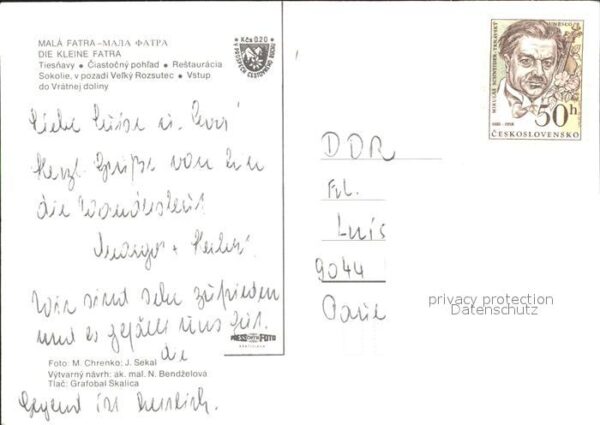 MALÁ FATRA – МАЛА ФАТРА
DIE KLEINE FATRA
Tiesňavy • Čiastočný pohľad • Reštaurácia
Sokolie, v pozadí Veľký Rozsutec • Vstup
do Vrátnej doliny
Kčs 0,20
Liebe Luise u.
Herzl. Grüße von
die
Margot +
Wir sind sehr zufrieden
und es gefällt uns gut.
die
Gegend ist herrlich.
Foto: M. Chrenko; J. Sekal
Výtvarný návrh: ak. mal. N. Bendželová
Tlač: Grafobal Skalica
PRESSFOTO
BRATISLAVA
UNESCO
MIKULÁŠ SCHNEIDER-TRNAVSKÝ
1881 - 1958
50 h
ČESKOSLOVENSKO
DDR
Frl.
Luis
9044
privacy protection
Datenschutz